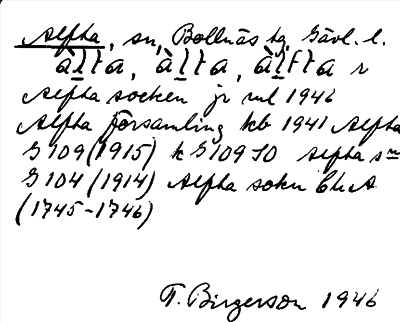 Alfta, sn, Bollnäs tg, Gävl. l.
àlta, àlta, àlfta r
Alfta socken jr rul 1946
Alfta församling kb 1941 Alfta
G 109 (1915) k G 109 SO Alfta sn
G 104 (1914) Alfta sokn
(1745-1746)
T. Birgerson 1946